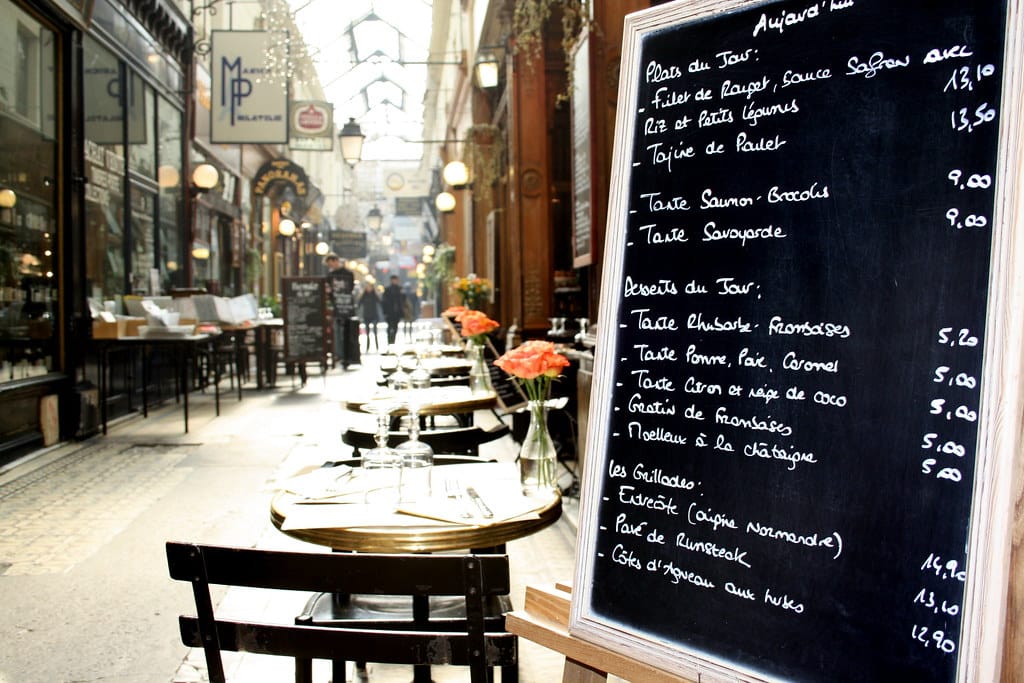 MARCHE
PHILATELIE
MP
PANORAMAS
Aujourd'hui
Plats du Jour:
- Filet de Rouget, sauce Safran avec
Riz et Petits légumes 13,10
- Tajine de Poulet 13,50
- Tarte Saumon-Brocolis 9,00
- Tarte Savoyarde 9,00
Desserts du Jour:
- Tarte Rhubarbe-Framboises 5,20
- Tarte Pomme, Poire, Caramel 5,00
- Tarte Citron et neige de coco 5,00
- Gratin de Framboises 5,00
- Moelleux à la châtaigne 5,00
Les Grillades:
- Entrecôte (origine Normandie) 14,90
- Pavé de Rumsteak 13,10
- Côtes d'Agneau aux herbes 12,90